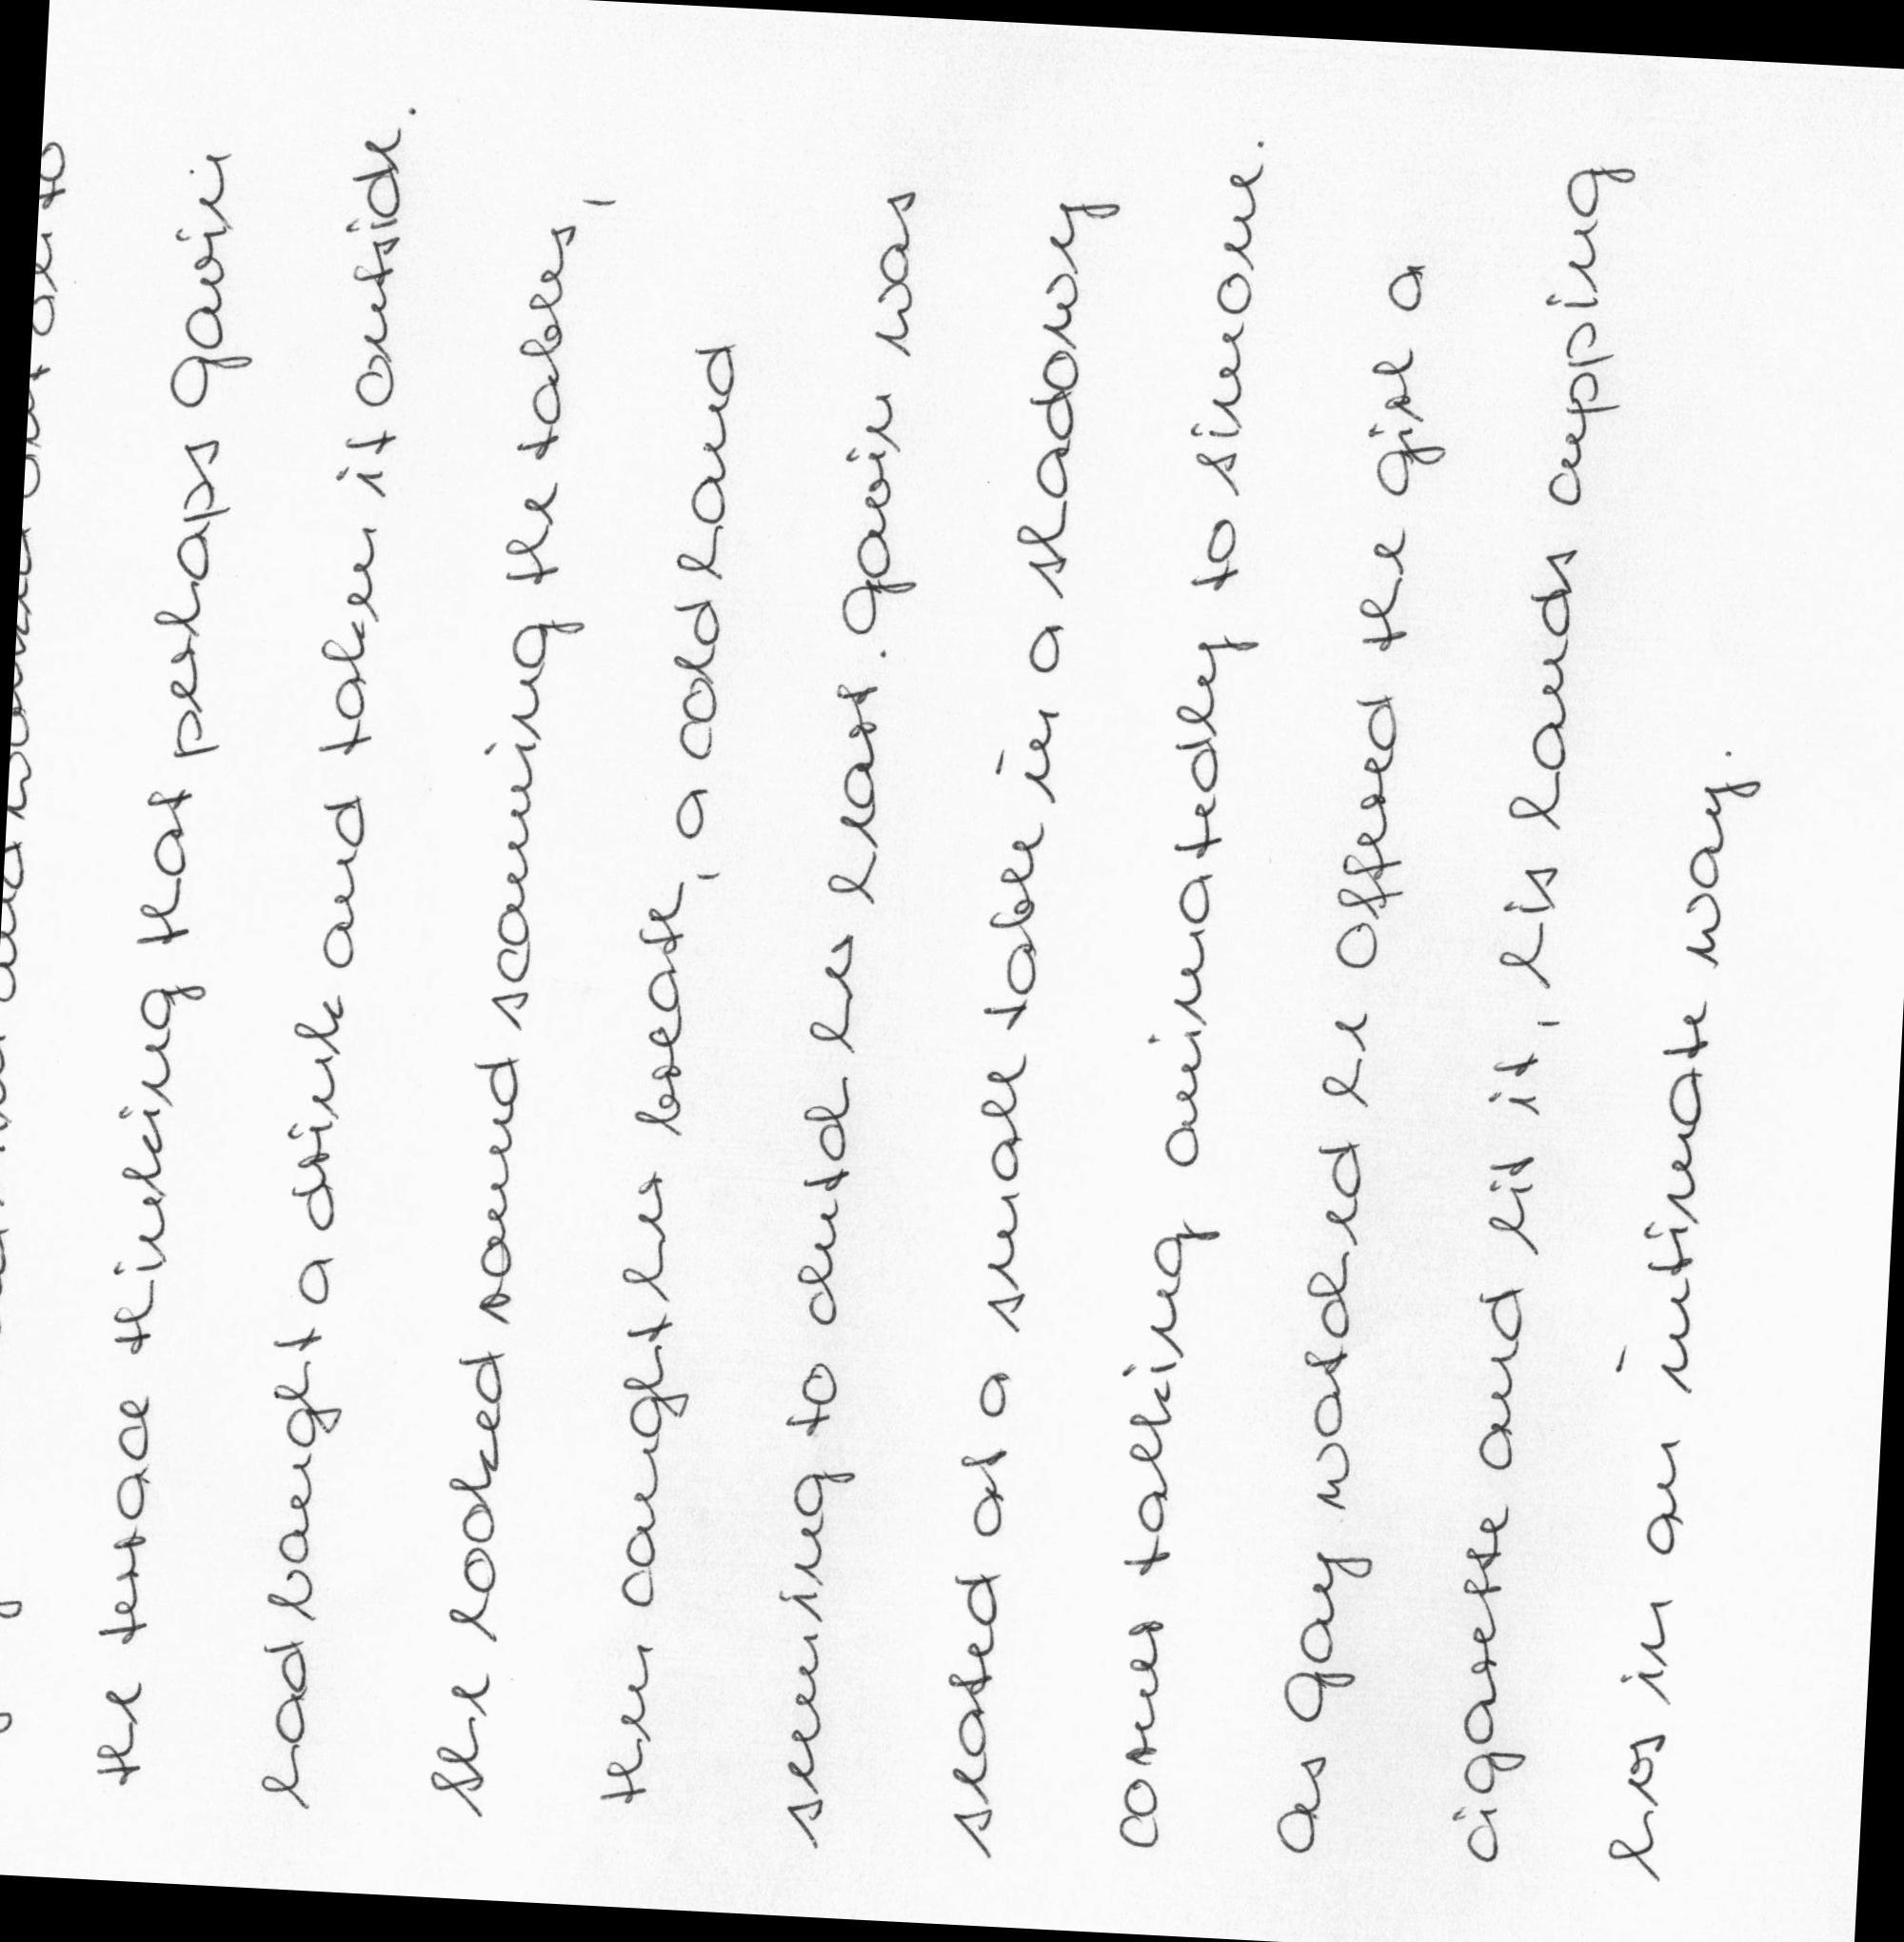 the terrace thinking that perhaps gavin
had bought a drink and taken it outside.
She looked round scanning the tables,
then caught her breath, a cold hand
seeming to clutch her heart. gavin was
seated at a small table in a shadowy
corner talking animatedly to simone.
As gay watched he offered the girl a
cigarette and lit it, his hands cupping
hers in an intimate way.